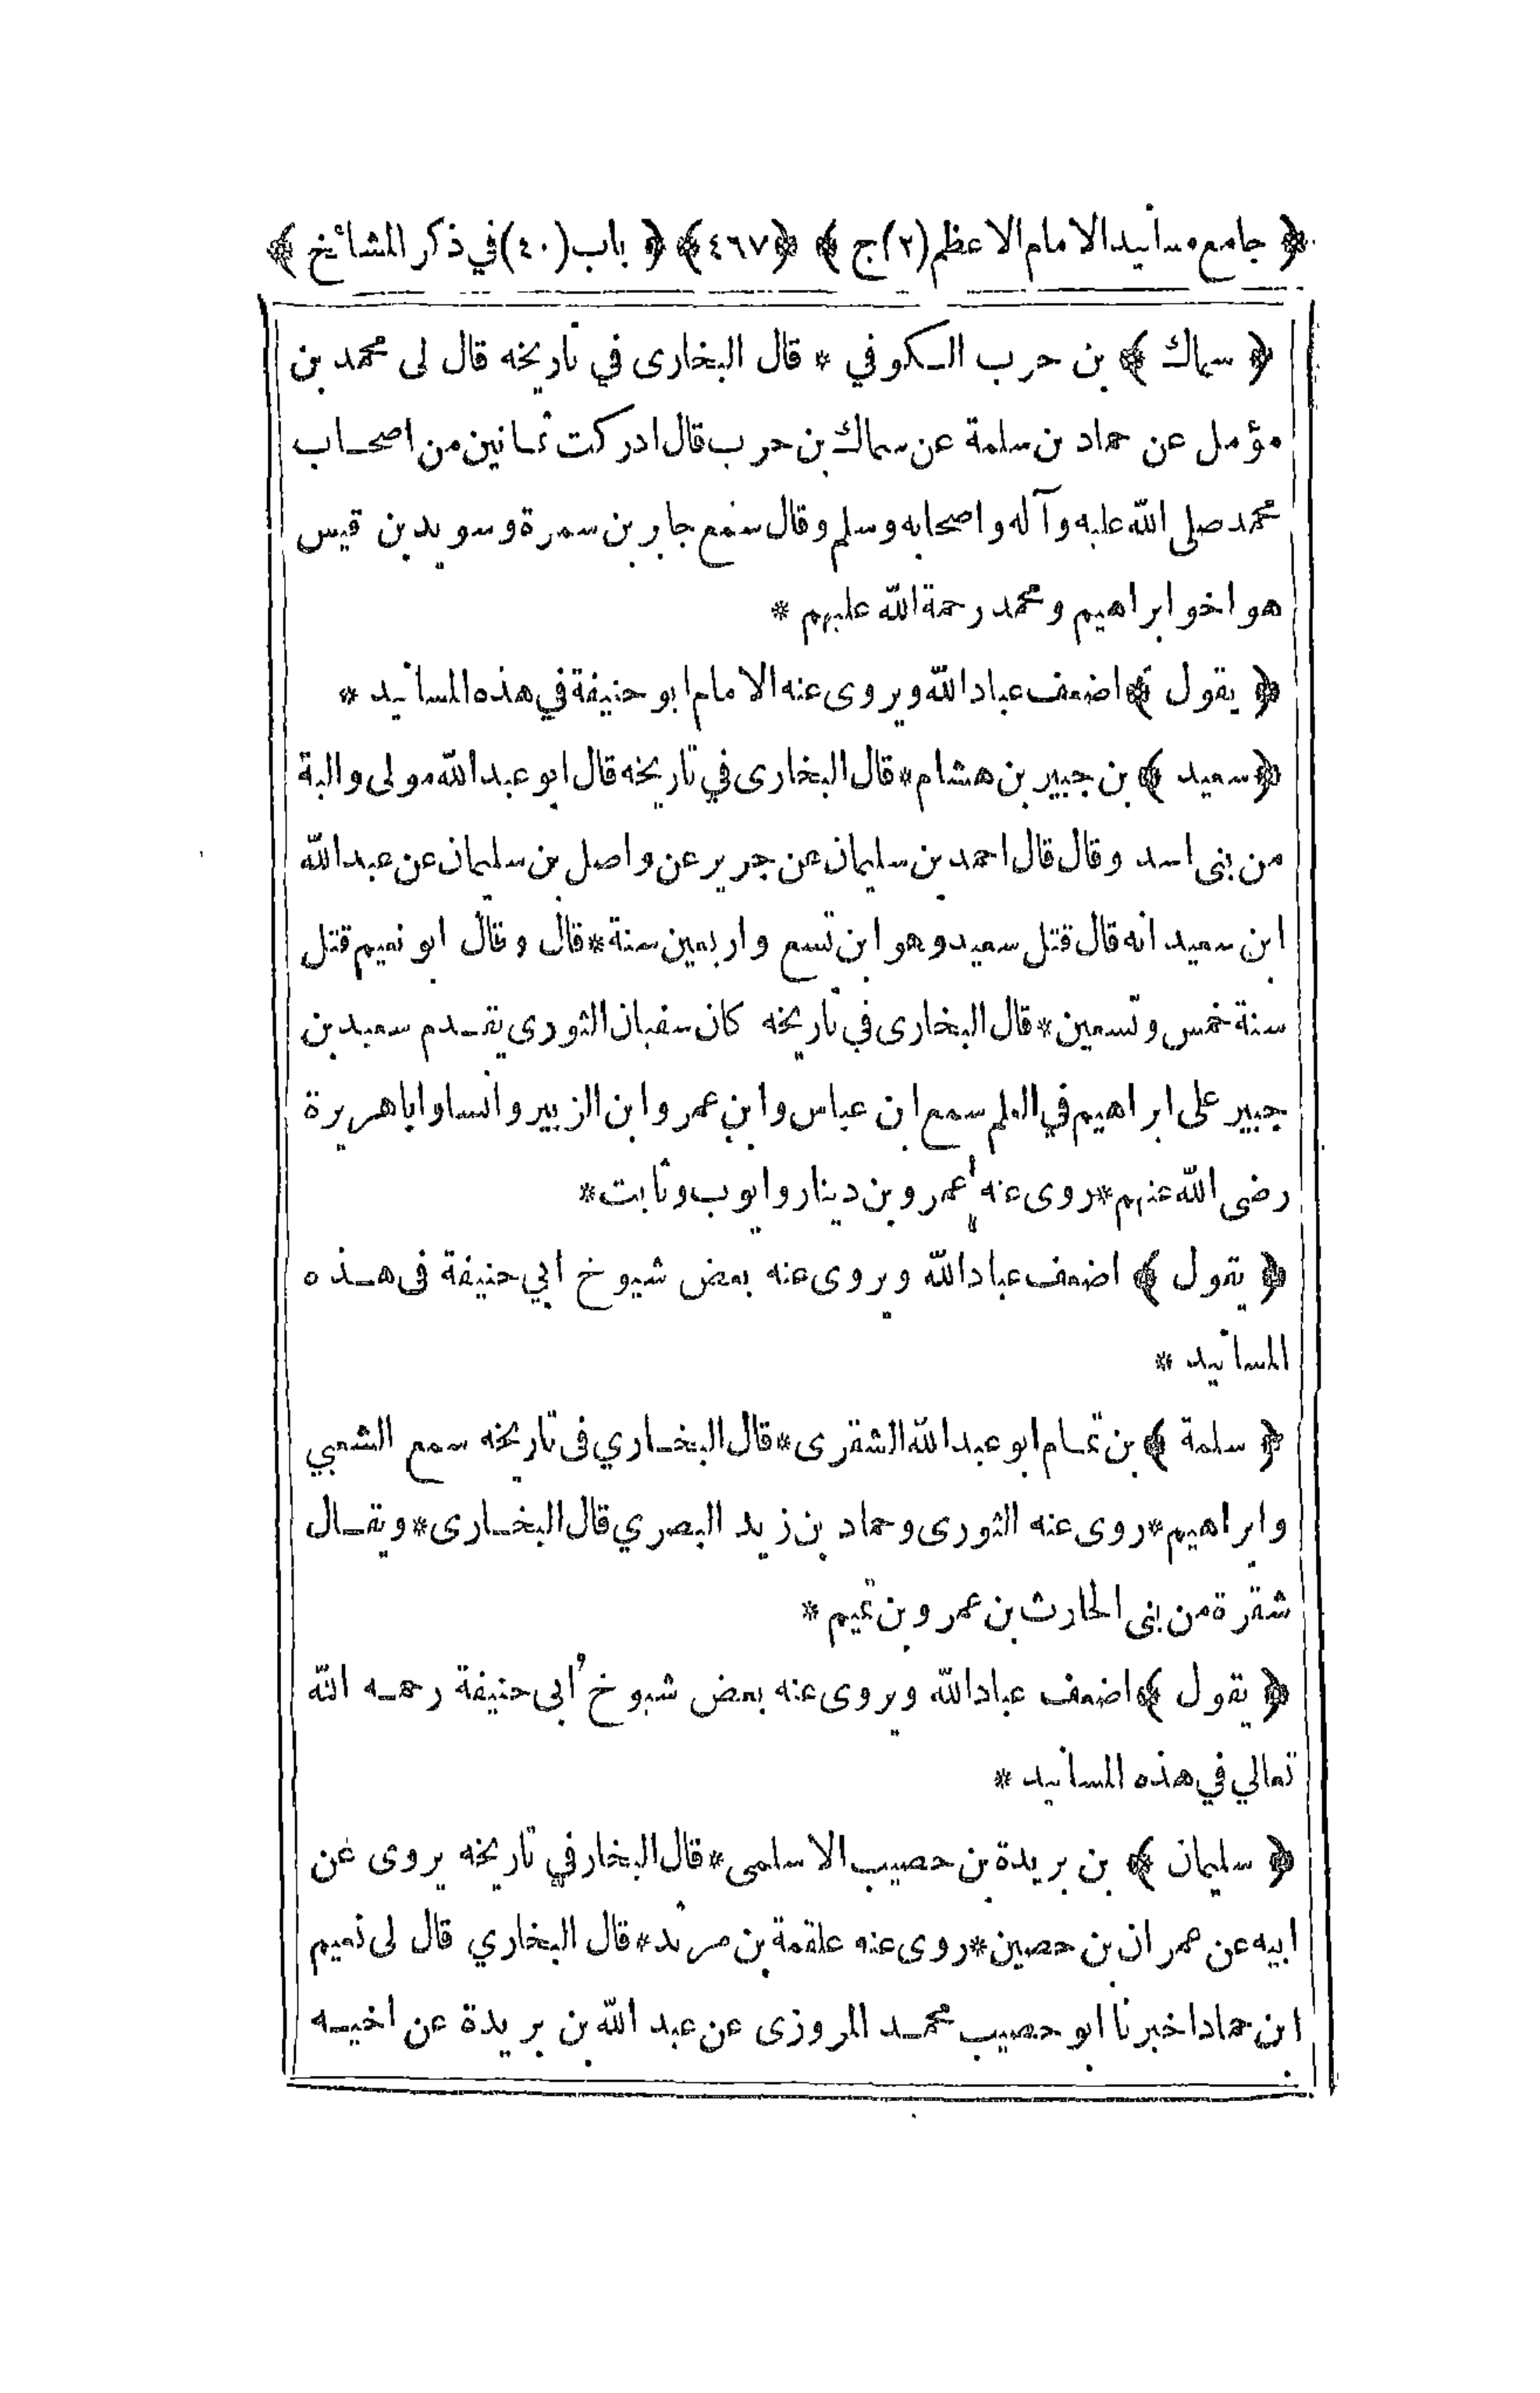 ﴿ جامع مسانيد الامام الاعظم (٢) ج ﴾ ﴿٤٦٧﴾ ﴿ باب (٤٠) في ذكر المشائخ ﴾
﴿ سماك ﴾ بن حرب الـكوفي * قال البخارى في تاريخه قال لى محمد بن
مؤمل عن حماد بن سلمة عن سماك بن حرب قال ادركت ثمانين من اصحاب
محمد صلى الله عليه وآله واصحابه وسلم وقال سمع جابر بن سمرة وسويد بن قيس
هو اخو ابراهيم ومحمد رحمة الله عليهم *
﴿ يقول ﴾ اضعف عباد الله ويروى عنه الامام ابو حنيفة في هذه المسانيد *
﴿ سعيد ﴾ بن جبير بن هشام * قال البخارى في تاريخه قال ابو عبد الله مولى والبة
من بنى اسد وقال قال احمد بن سليمان عن جرير عن واصل بن سليمان عن عبد الله
ابن سعيد انه قال قتل سعيد وهو ابن تسع واربعين سنة * قال وقال ابو نعيم قتل
سنة خمس وتسعين * قال البخارى في تاريخه كان سفيان الثورى يقدم سعيد بن
جبير على ابراهيم في العلم سمع ابن عباس وابن عمر وابن الزبير وانسا وابا هريرة
رضى الله عنهم * روى عنه عمرو بن دينار وايوب وثابت *
﴿ يقول ﴾ اضعف عباد الله ويروى عنه بعض شيوخ ابي حنيفة فى هذه
المسانيد *
﴿ سلمة ﴾ بن تمام ابو عبد الله الشقرى * قال البخاري فى تاريخه سمع الشعبي
وابراهيم * روى عنه الثورى وحماد بن زيد البصري قال البخارى * ويقال
شقرة من بنى الحارث بن عمرو بن تميم *
﴿ يقول ﴾ اضعف عباد الله ويروى عنه بعض شيوخ أبى حنيفة رحمه الله
تعالي في هذه المسانيد *
﴿ سليمان ﴾ بن بريدة بن حصيب الاسلمى * قال البخار في تاريخه يروى عن
ابيه عن عمران بن حصين * روى عنه علقمة بن مرثد * قال البخاري قال لى نعيم
ابن حماد اخبرنا ابو حصيب محمد المروزى عن عبد الله بن بريدة عن اخيه